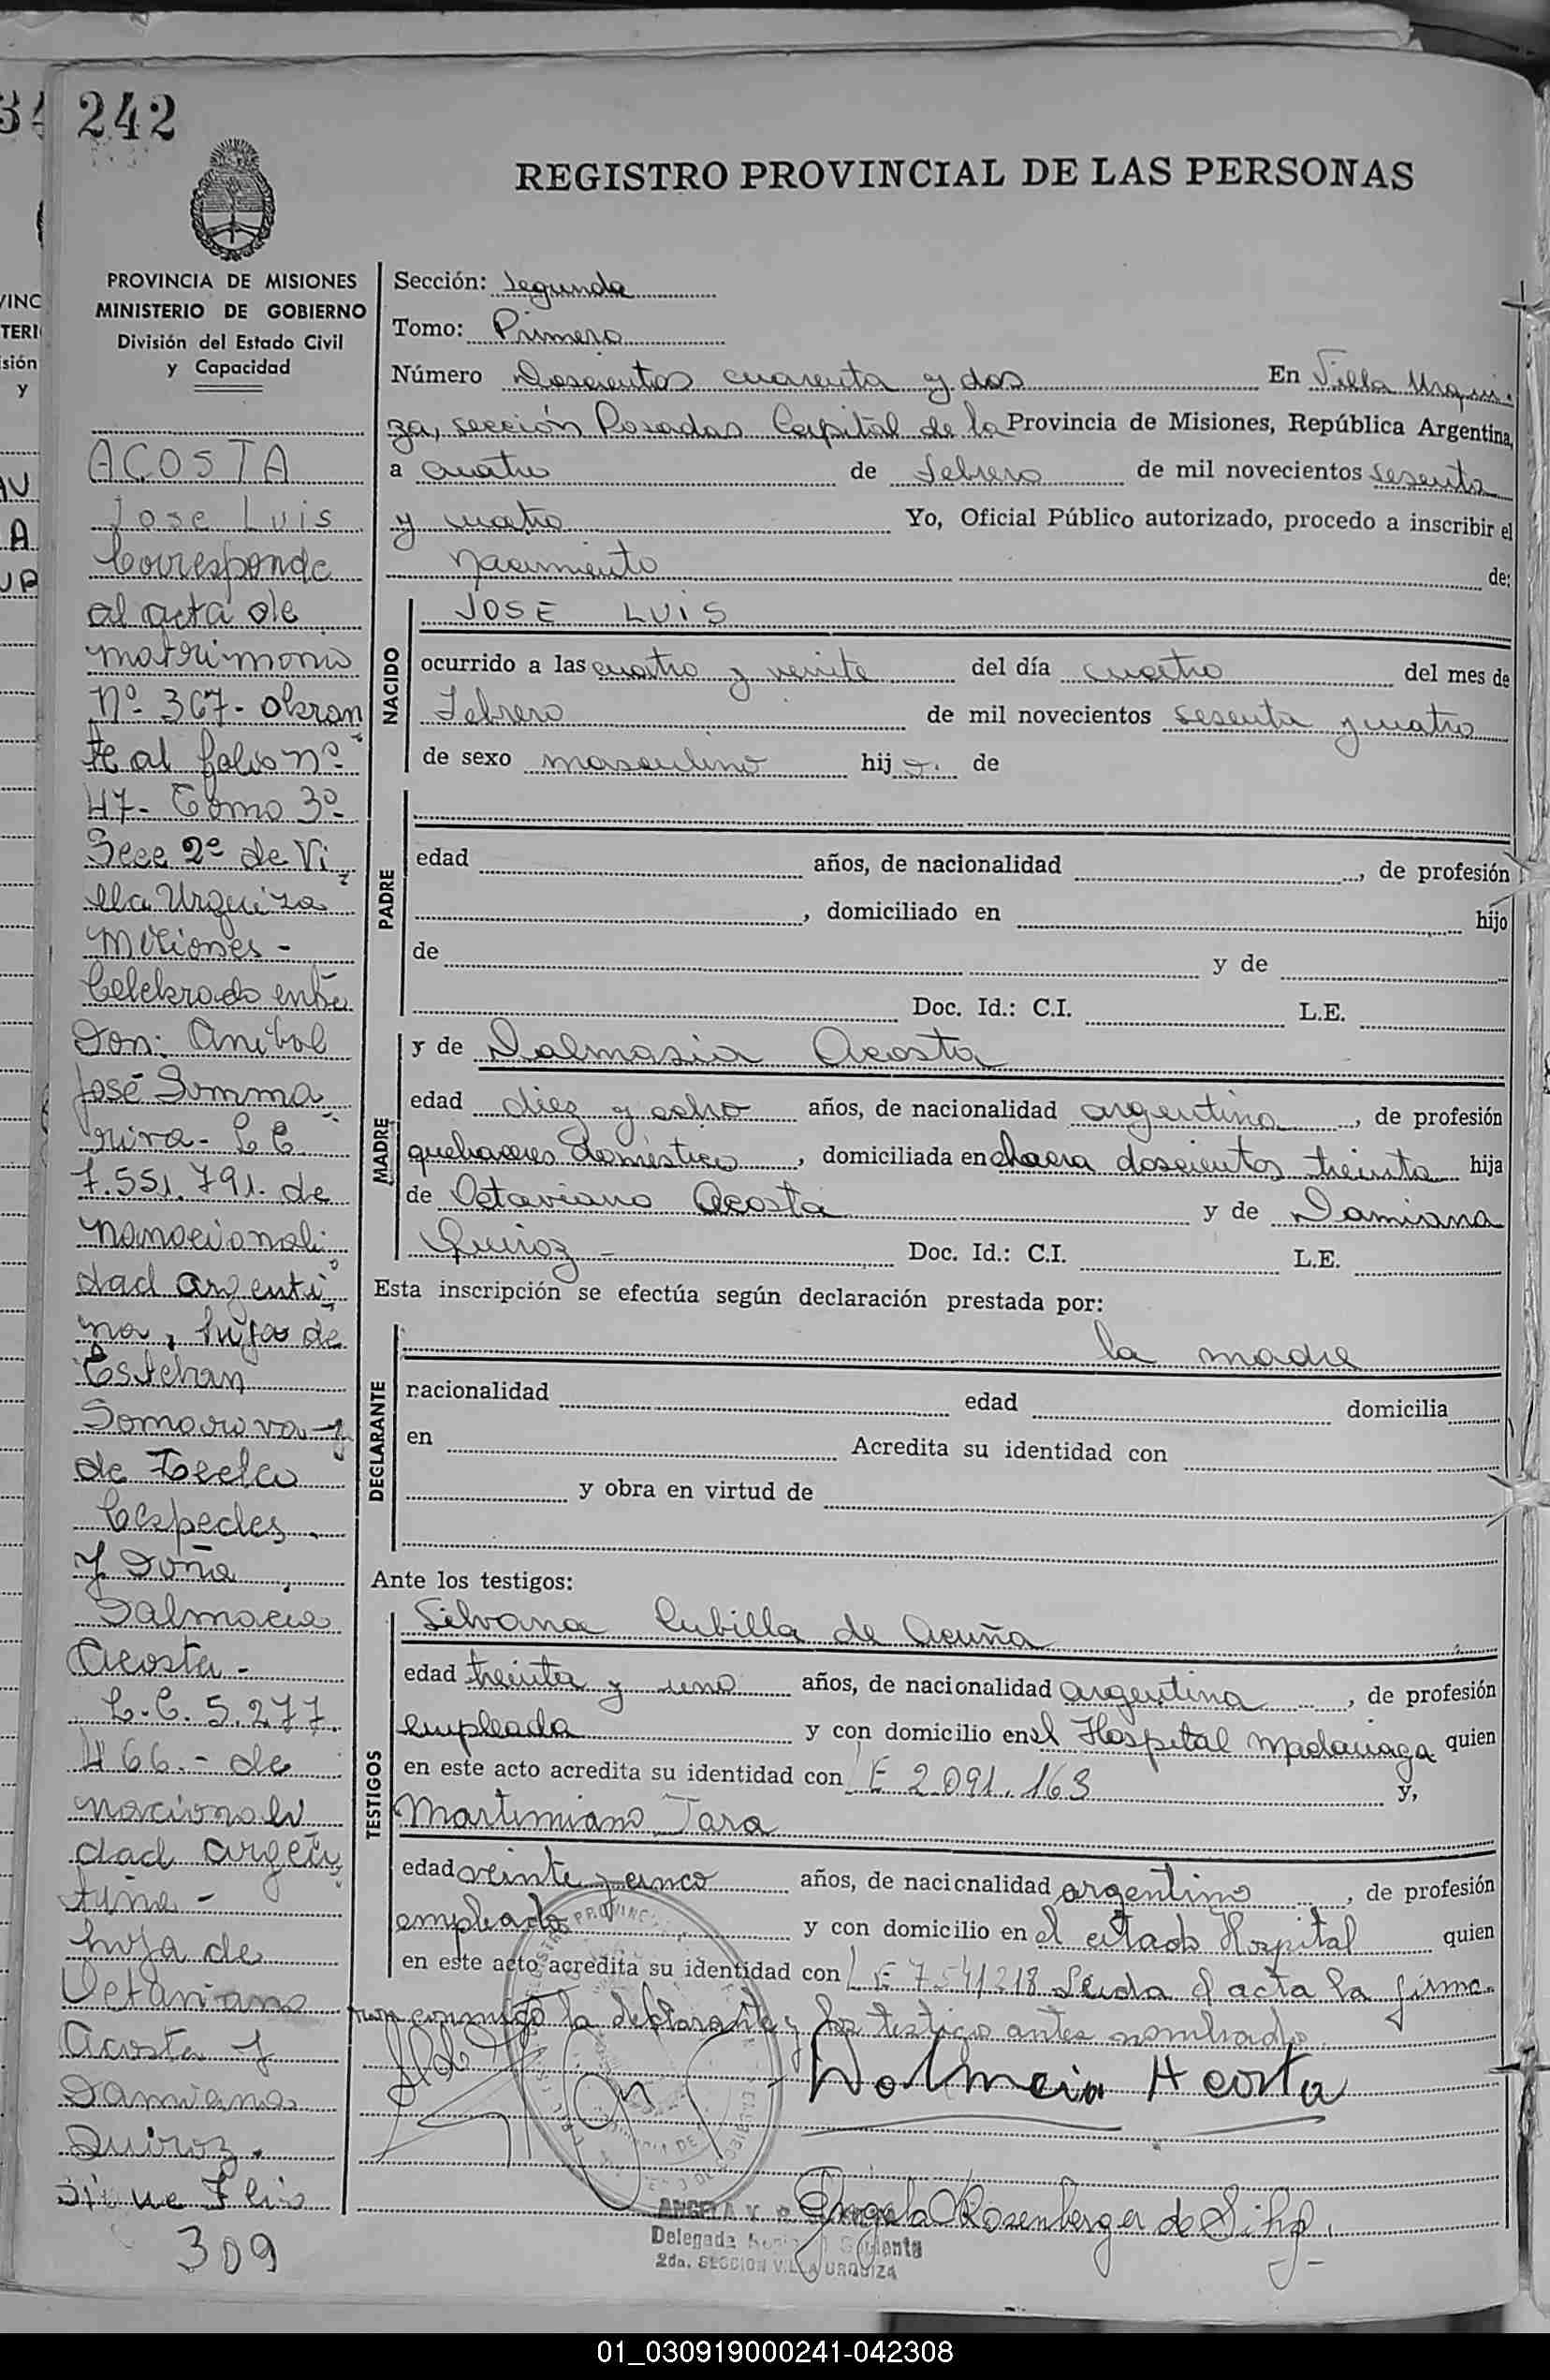 242
REGISTRO PROVINCIAL DE LAS PERSONAS
PROVINCIA DE MISIONES
MINISTERIO DE GOBIERNO
División del Estado Civil
y Capacidad
ACOSTA
Jose Luis
Corresponde
al acta de
matrimonio
Nº 367- obran
te al folio nº
47- Tomo 3º
Secc 2ª de Vi
lla Urquiza
Misiones -
Celebrado entre
Don: Anibal
José Somma
riva- L E
7.551.791. de
nanacionali
dad argenti
na, hijo de
Esteban
Somariva y
de
Cespedes.
Y Doña
Dalmacia
Acosta -
L.C. 5.277.
466.- de
nacionali
dad argen
tina -
hija de
Octaviano
Acosta y
Damiana
Quiroz.
Sigue Flio
309
Sección: Segunda
Tomo: Primero
Número Doscientos cuarenta y dos En Villa Urqui
za, sección Posadas Capital de la Provincia de Misiones, República Argentina,
a cuatro de Febrero de mil novecientos sesenta
y cuatro Yo, Oficial Público autorizado, procedo a inscribir el
nacimiento de:
NACIDO
JOSE LUIS
ocurrido a las cuatro y veinte del día cuatro del mes de
Febrero de mil novecientos sesenta y cuatro
de sexo masculino hijo. de
PADRE
edad años, de nacionalidad , de profesión
, domiciliado en hijo
de y de
Doc. Id.: C.I. L.E.
MADRE
y de Dalmasia Acosta
edad diez y ocho años, de nacionalidad argentina , de profesión
quehaceres doméstico , domiciliada en chacra doscientos treinta hija
de Octaviano Acosta y de Damiana
Quiroz - Doc. Id.: C.I. L.E.
Esta inscripción se efectúa según declaración prestada por:
DECLARANTE
la madre
nacionalidad edad domicilia
en Acredita su identidad con
y obra en virtud de
Ante los testigos:
TESTIGOS
Silvana Cubilla de Acuña
edad treinta y uno años, de nacionalidad argentina , de profesión
empleada y con domicilio en el Hospital Madariaga quien
en este acto acredita su identidad con LE 2.091.163 y,
Martimiano Jara
edad veinte y cinco años, de nacionalidad argentino , de profesión
empleado y con domicilio en el citado Hospital quien
en este acto acredita su identidad con LE 7541218 Leida el acta la firma-
ron conmigo la declarante y los testigos antes nombrados
Dolmcia Acosta
Angela Rosenberger de
ANGELA
Delegada
2da. SECCION VILLA URQUIZA
01_030919000241-042308